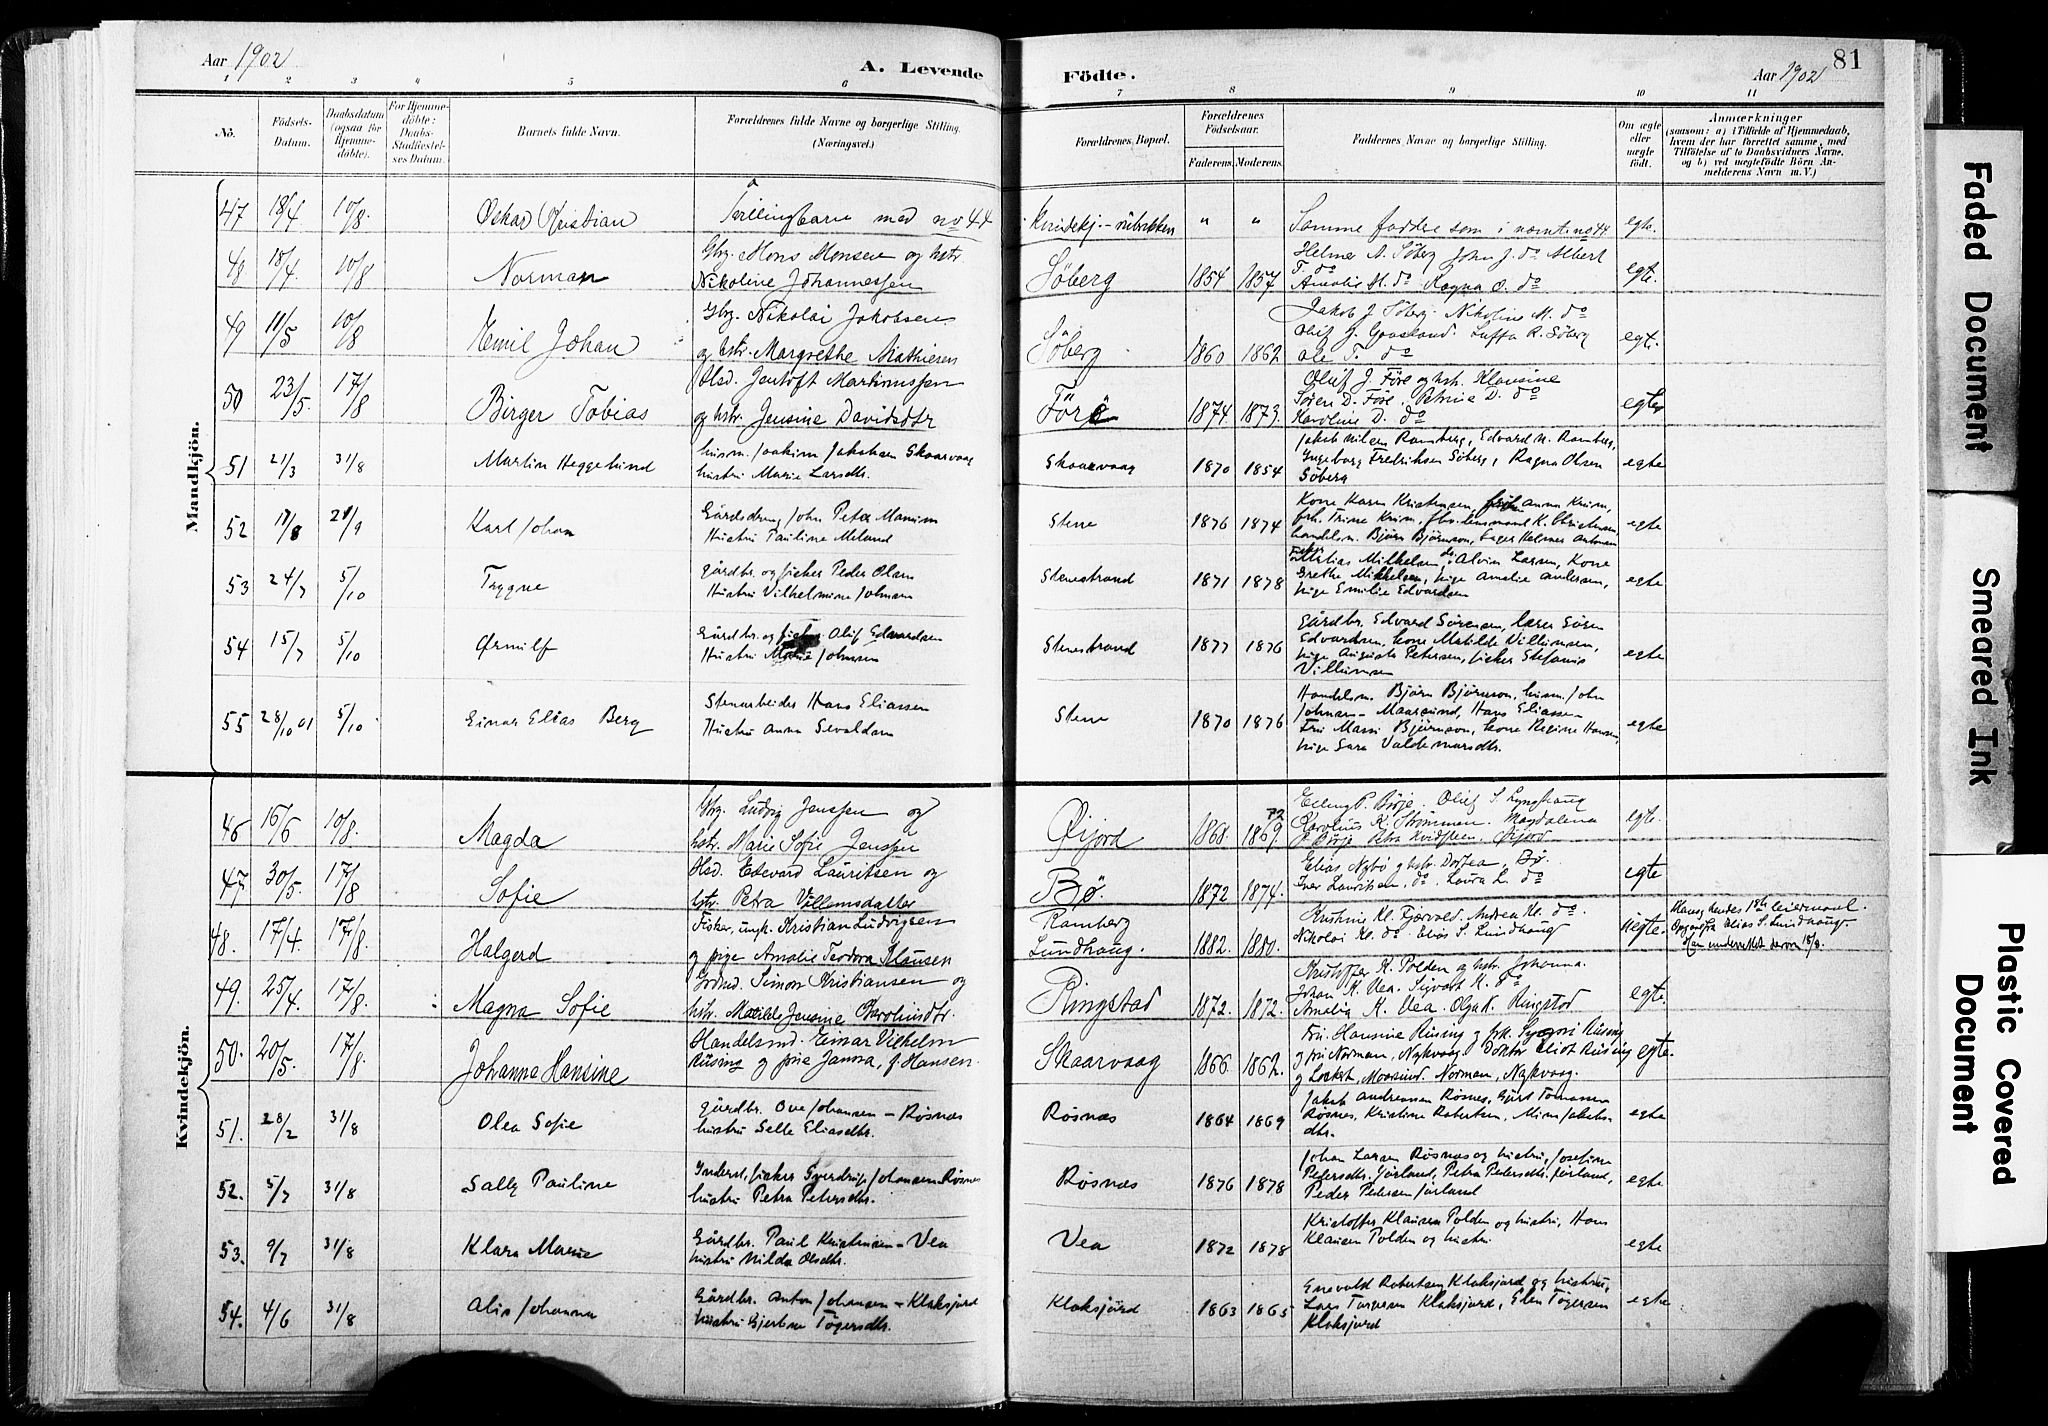 Aar 1902
A. Levende
Födte.
81
Aar 1902
1 2 3 4 5 6 7 8 9 10 11
No.
Födsels-
Datum.
Daabsdatum
(ogsaa for
Hjemme-
döbte).
For Hjemme-
döbte:
Daabs-
Stadfæstel-
ses Datum.
Barnets fulde Navn.
Forældrenes fulde Navne og borgerlige Stilling.
(Næringsvei.)
Forældrenes Bopæl.
Forældrenes
Födselsaar.
Faderens. Moderens.
Faddernes Navne og borgerlige Stilling.
Om ægte
eller
uægte
födt.
Anmærkninger
(saasom: a) i Tilfælde af Hjemmedaab,
hvem der har forrettet samme, med
Tilföielse af to Daabsvidners Navne,
og b) ved uægtefödte Börn An-
melderens Navn m. V.)
Mandkjön.
47 18/4 10/8. Oskar Kristian Tvillingbarn med no 44 Kvindekj.-rubrikken " " Samme faddere som i nævnte no 44 egte.
48 18/4 10/8 Norman Gbrg. Mons Monsen og hstr.
Nikoline Johannessen Söberg 1854 1857 Helmer A. Söberg John J. do Albert
T. do
Amalie M. do Ragna O. do egte.
49 11/5 10/8 Emil Johan Gbrg. Nikolai Jakobsen
og hstr. Margrethe Mathiesen Söberg 1860 1862 Jakob J. Söberg. Nikoline M. do
Oluf J. R. Söberg
Ole T. do egte.
50 23/5. 17/8 Birger Tobias Hsd. Jentoft Martinussen
og hstr. Jensine Davidsdtr Före 1874. 1873. Oluf J. Före og hstr. Klausine
Sören D. Före, Petrine D. do
Karoline D. do egte
51 21/3 31/8 Martin Heggelund husm. Joakim Jakobsen Skaarvaag
hustru Marie Larsdtr. Skaarvaag 1870 1854 Jakob Nilsen Ramberg, Edvard N. Ramberg,
Ingeborg Fredriksen Söberg, Ragna Olsen
Söberg egte
52 17/8 21/9 Karl Johan Gårdsdreng John Peter
Hustru Pauline Meland Stene 1876 1874 Kone Karen Kristensen, Anna Krim,
frk. Trine Krim, fhv. lensmand K. Christensen,
handelsm. Björn Björnson, Helmer Antonsen egte
53 24/7 5/10 Trygve gårdbr. og fisker Peder Olsen
Hustru Vilhelmine Johnsen Stenestrand 1871 1878 Mikkelsen, do. Alvin Larsen, Kone
Grethe Mikkelsen, pige Amalie Andersen,
pige Emilie Edvardsen egte
54 15/7 5/10 Ørnulf Gårdbr. og fisker Oluf Edvardsen
Hustru Marie Johnsen Stenestrand 1877 1876 Gårdbr. Edvard Sörensen, lærer Sören
Edvardsen, kone Matilde Villumsen,
pige Augusta Petersen, fisker Stefanus
Villumsen egte
55 28/10 01 5/10 Einar Elias Berg Stenarbeider Hans Eliassen
Hustru Anna Sevaldsen Stene 1870 1876 Handelsm. Björn Björnson, husm. John
Johnsen - Maarsund, Hans Eliassen
Fru Massi Björnson, kone Regine Hansen,
pige Sara Valdemarsdtr. egte
Kvindekjön.
46 16/6 10/8. Magda Gbrg. Ludvig Jenssen og
hstr. Marie Sofie Jenssen Øifjord 1868. 1869. 72 Erling P. Börje. Oluf S. Lynghaug
Karolius K. Strömmen. Magdalena
P. Börje Petra Kvidsteen, Øifjord egte.
47 30/5. 17/8 Sofie Hsd. Edevard Lauritsen og
hstr. Petra Villumsdatter Bö. 1872 1874. Elias Nybö og hstr. Dortea, Bö.
Iver Lauritsen, do. Laura L. do egte
48. 17/4. 17/8. Halgerd Fisker, ungk. Kristian Ludvigsen
og pige Amalie Teodora Klausen Ramberg
Lundhaug. 1882. 1880. Kristine Kl. Fjærvold. Andrea Kl. do.
Nikolai Kl. do Elias S. Lundhaug uegte. Hans og hendes 1ste leiermaal.
Opgave fra Elias S. Lundhaug
Han underrettet derom 18/8.
49. 25/4. 17/8. Magna Sofie Grdmd. Simon Kristiansen og
hstr. Matilde Jensine Karolinsdtr. Ringstad 1872. 1872. Kristoffer K. Polden og hstr. Johanna.
Johan K. Vea. Sigvart K. do
Amalia K. Vea. Olga K. Ringstad egte.
50. 20/5. 17/8. Johanna Hansine Handelsmd. Einar Vilhelm
Rüsing og frue Janna, f. Hansen. Skaarvaag 1866. 1862. Fru. Hansine Rüsing og frk. Sigri Rüsing
og fru Norman, Nykvaag. Doktor Eliot Rüsing
og Lockert, Maarsund. Norman, Nykvaag. egte.
51. 28/2 31/8 Olea Sofie gårdbr. Ove Johansen - Røsnæs
hustru Selle Eliasdtr. Røsnæs 1864 1869 Jakob Andreassen Røsnes, Gjert Tomassen
Røsnes, Kristine Robertsen, Mina Jakobs-
dtr. egte
52. 5/7 31/8 Sally Pauline Inderst, fisker Sverdrup Johansen Røsnes
hustru Petra Petersdtr. Røsnæs 1876 1878 Johan Larsen Røsnæs og hustru, Josefine
Pedersdtr. Jörland, Petra Pedersdtr. Jörland,
Peder Petersen Jörland egte
53. 9/7 31/8 Klara Marie Gårdbr. Paul Kristensen - Vea
hustru Hilda Olsdtr. Vea 1872 1878 Kristoffer Klausen Polden og hustru, Hans
Klausen Polden og hustru egte
54. 4/6 31/8 Alis Johanna Gårdbr. Anton Johansen - Klaksjord
hustru Bjertine Tögersdtr. Klaksjord 1863 1865 Enevold Robertsen Klaksjord og hustru,
Lars Torgersen Klaksjord, Elen Tögersen
Klaksjord egte
Faded Document
Smeared Ink
Plastic Covered
Document